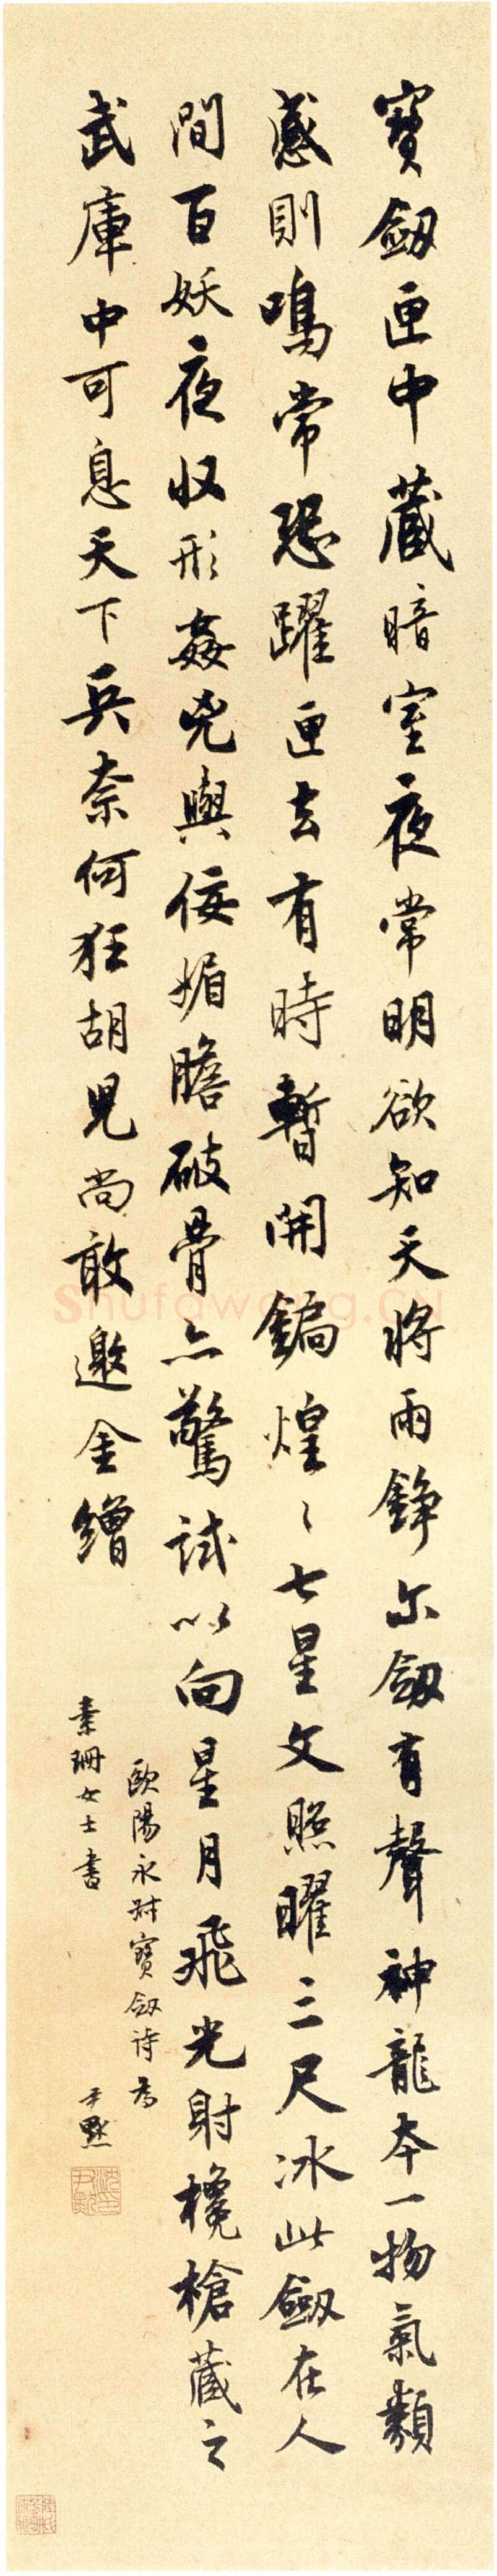 寶劔匣中藏暗室夜常明欲知天將雨錚尒劔有聲神龍本一物氣類
感則鳴常恐躍匣去有時暫開鐍煌〻七星文照曜三尺冰此劔在人
間百妖夜收形姦兇與佞媚膽破骨亦驚試以向星月飛光射欃槍藏之
武庫中可息天下兵奈何狂胡兒尚敢邀金繒
歐陽永叔寶劔诗为
素珊女士書
尹默
Shufawang.CN